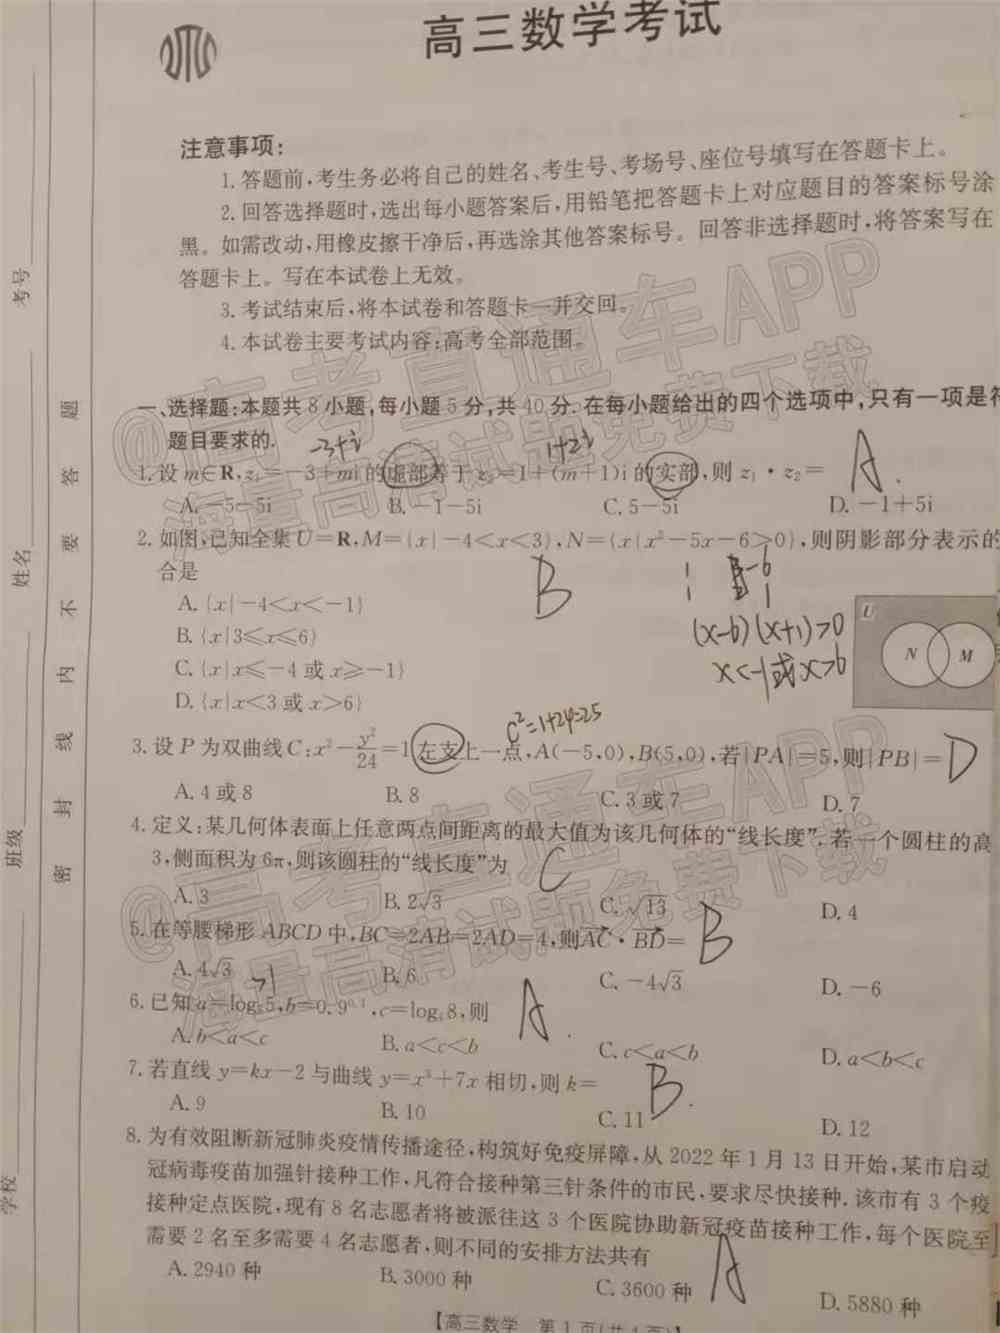 高三数学考试
注意事项:
1.答题前,考生务必将自己的姓名、考生号、考场号、座位号填写在答题卡上。
2.回答选择题时,选出每小题答案后,用铅笔把答题卡上对应题目的答案标号涂
黑。如需改动,用橡皮擦干净后,再选涂其他答案标号。回答非选择题时,将答案写在
答题卡上。写在本试卷上无效。
3.考试结束后,将本试卷和答题卡一并交回。
4.本试卷主要考试内容:高考全部范围。
@高考直通车APP
海量高清试题免费下载
一、选择题:本题共8小题,每小题5分,共40分.在每小题给出的四个选项中,只有一项是符
题目要求的.
-3+i
1+2i
1.设m∈R,z₁=-3+mi的虚部等于z₂=1+(m+1)i的实部,则z₁·z₂=
A
A.-5-5i B.-1-5i C.5-5i D.-1+5i
2.如图,已知全集U=R,M={x|-4<x<3},N={x|x²-5x-6>0},则阴影部分表示的
合是
B
A.{x|-4<x<-1}
B.{x|3≤x≤6}
C.{x|x≤-4或x≥-1}
D.{x|x<3或x>6}
1 -6
1 1
(x-6)(x+1)>0
x<-1或x>6
U
N M
c²=1+24=25
3.设P为双曲线C:x²-y²/24=1左支上一点,A(-5,0),B(5,0),若|PA|=5,则|PB|=
D
A.4或8 B.8 C.3或7 D.7
4.定义:某几何体表面上任意两点间距离的最大值为该几何体的“线长度”.若一个圆柱的高
3,侧面积为6π,则该圆柱的“线长度”为
C
A.3 B.2√3 C.√13 D.4
@高考直通车APP
海量高清试题免费下载
5.在等腰梯形ABCD中,BC=2AB=2AD=4,则AC·BD=
B
A.4√3 B.6 C.-4√3 D.-6
>1
6.已知a=log₃5,b=0.9⁰·¹,c=log₄8,则
A
A.b<a<c B.a<c<b C.c<a<b D.a<b<c
7.若直线y=kx-2与曲线y=x³+7x相切,则k=
B
A.9 B.10 C.11 D.12
8.为有效阻断新冠肺炎疫情传播途径,构筑好免疫屏障,从2022年1月13日开始,某市启动
冠病毒疫苗加强针接种工作,凡符合接种第三针条件的市民,要求尽快接种.该市有3个疫
接种定点医院,现有8名志愿者将被派往这3个医院协助新冠疫苗接种工作,每个医院至
需要2名至多需要4名志愿者,则不同的安排方法共有
A
A.2940种 B.3000种 C.3600种 D.5880种
【高三数学 第1页(共4页)】
考号
姓名
班级
学校
密封线内不要答题